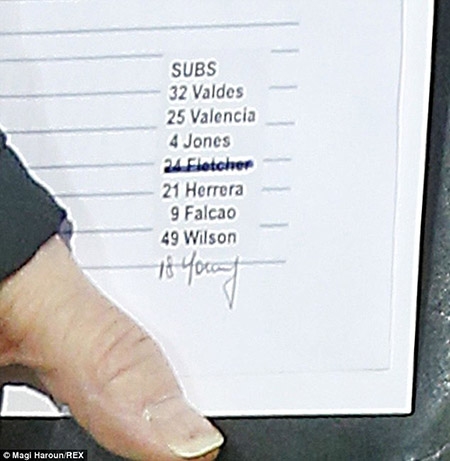 SUBS
32 Valdes
25 Valencia
4 Jones
24 Fletcher
21 Herrera
9 Falcao
49 Wilson
18 Young
© Magi Haroun/REX